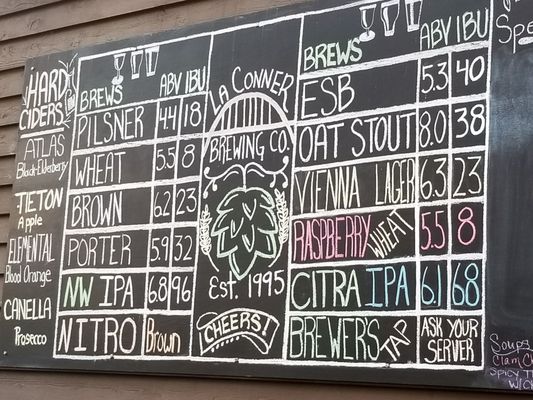 HARD
CIDERS
ATLAS
Black-Elderberry
TIETON
Apple
ELEMENTAL
Blood Orange
CANELLA
Prosecco
BREWS ABV IBU
PILSNER 4.4 18
WHEAT 5.5 8
BROWN 6.2 23
PORTER 5.9 32
NW IPA 6.8 96
NITRO Brown
LA CONNER
BREWING CO.
Est. 1995
CHEERS!
BREWS ABV IBU
ESB 5.3 40
OAT STOUT 8.0 38
VIENNA LAGER 6.3 23
RASPBERRY WHEAT 5.5 8
CITRA IPA 6.1 68
BREWER'S TAP ASK YOUR
SERVER
Soups
Clam